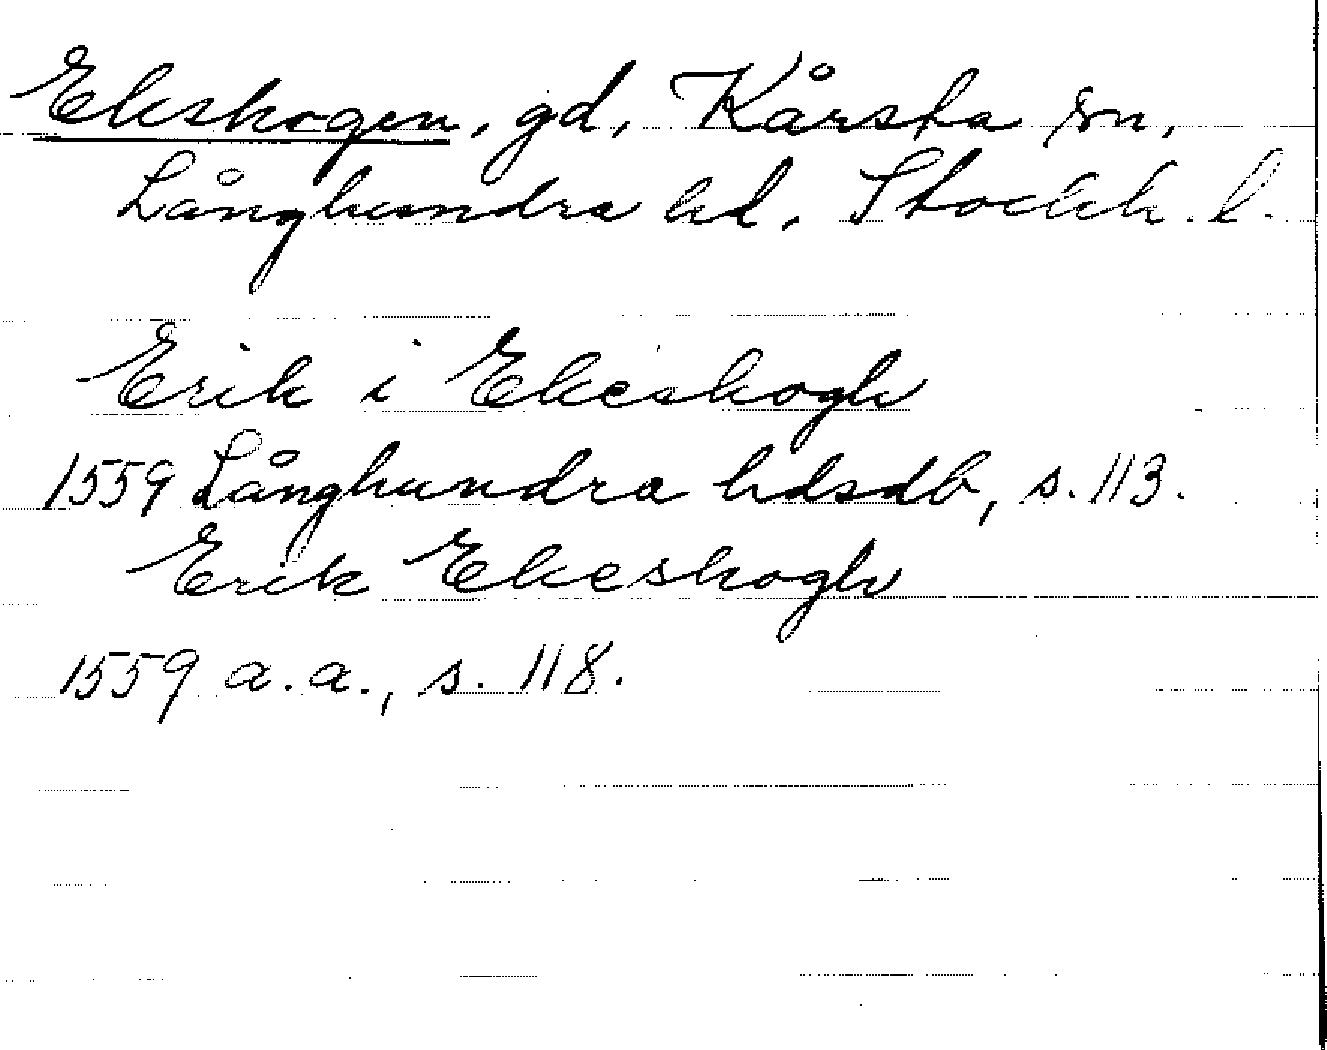 Ekskogen, gd, Kårsta sn,
Långhundra hd, Stockh. l.
Erik i Ekeskogh
1559 Långhundra hdsdb, s. 113.
Erik Ekeskogh
1559 a.a., s. 118.